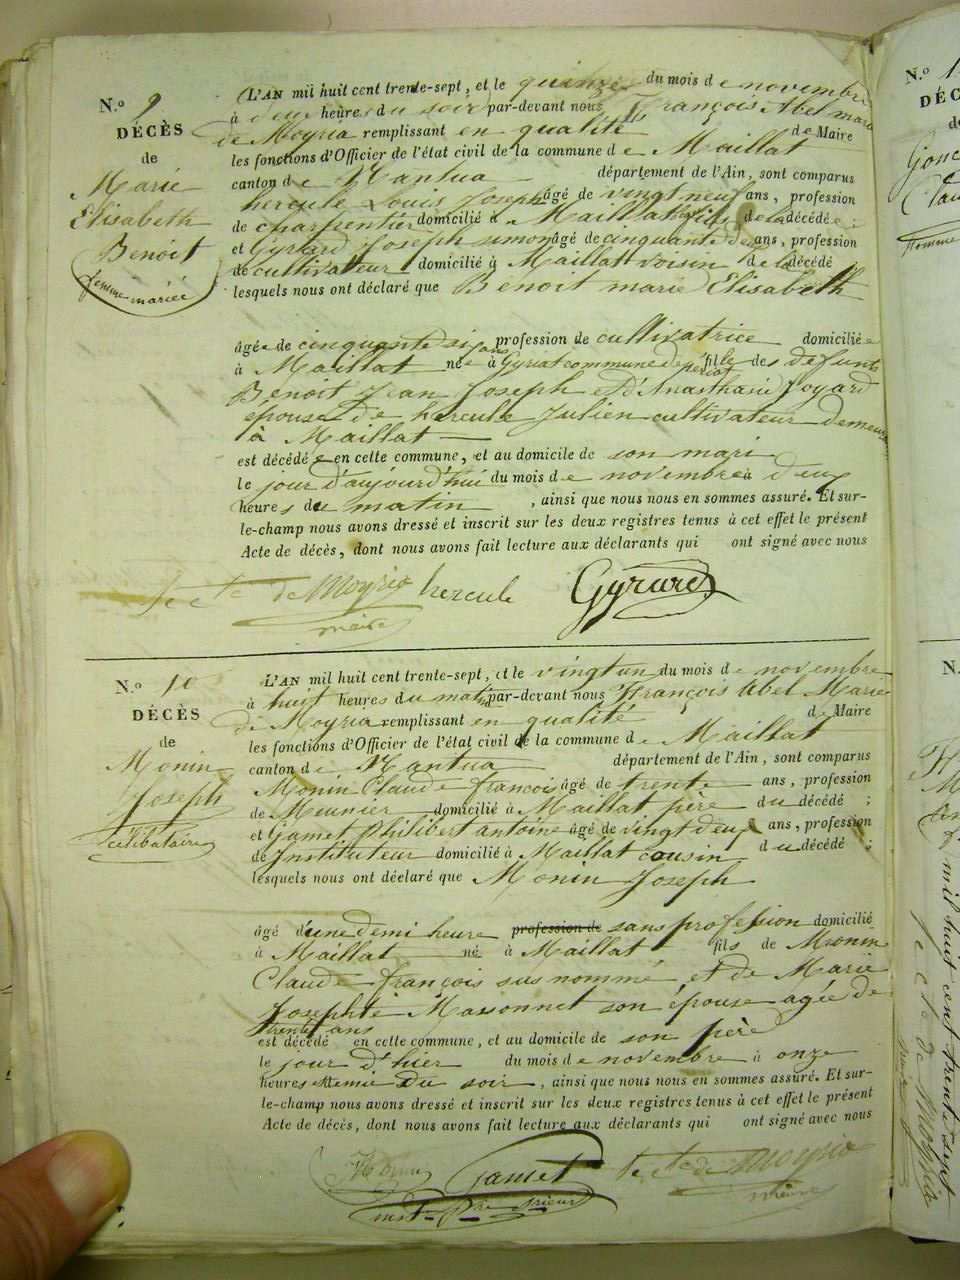 N.o 9
DÉCÈS
de
Marie
Elisabeth
Benoit
femme mariée
L'AN mil huit cent trente-sept, et le quinze du mois de novembre
à deux heures du soir par-devant nous François Abel marie
de Moyria remplissant en qualité de Maire
les fonctions d'Officier de l'état civil de la commune de Maillat
canton de Nantua département de l'Ain, sont comparus
hercule Louis Joseph âgé de vingt neuf ans, profession
de charpentier domicilié à Maillat fils de la décédée ;
et Gyrard Joseph simon âgé de cinquante deux ans, profession
de cultivateur domicilié à Maillat voisin de la décédé
lesquels nous ont déclaré que Benoit marie Elisabeth
âgée de cinquante six ans profession de cultivatrice domiciliée
à Maillat née à Gyriat commune de periat fille des defunts
Benoit Jean Joseph et d'Anasthasie Joyard
epouse de hercule Julien cultivateur demeurt
à Maillat
est décédée en cette commune, et au domicile de son mari
le jour d'aujourd'hui du mois de novembre à deux
heures du matin , ainsi que nous nous en sommes assuré. Et sur-
le-champ nous avons dressé et inscrit sur les deux registres tenus à cet effet le présent
Acte de décès, dont nous avons fait lecture aux déclarants qui ont signé avec nous
le cte de Moyria hercule Gyrard
maire
N.o 10
DÉCÈS
de
Monin
Joseph
celibataire
L'AN mil huit cent trente-sept, et le vingt un du mois de novembre
à huit heures du matin par-devant nous François Abel Marie
de Moyria remplissant en qualité de Maire
les fonctions d'Officier de l'état civil de la commune de Maillat
canton de Nantua département de l'Ain, sont comparus
Monin Claude françois âgé de trente ans, profession
de Meunier domicilié à Maillat père du décédé ;
et Gamet philibert antoine âgé de vingt deux ans, profession
de Instituteur domicilié à Maillat cousin du décédé ;
lesquels nous ont déclaré que Monin Joseph
âgé d'une demi heure profession de sans profession domicilié
à Maillat né à Maillat fils de Monin
Claude françois sus nommé et de Marie
Josephte Massonnet son épouse agée de
trente ans
est décédé en cette commune, et au domicile de son père
le jour d'hier du mois de novembre à onze
heures et demie du soir , ainsi que nous nous en sommes assuré. Et sur-
le-champ nous avons dressé et inscrit sur les deux registres tenus à cet effet le présent
Acte de décès, dont nous avons fait lecture aux déclarants qui ont signé avec nous
Monin Gamet le cte de Moyria
maire
N.o 1
DÉC
de
N.
mil huit cent trente sept
le cte de Moyria
maire